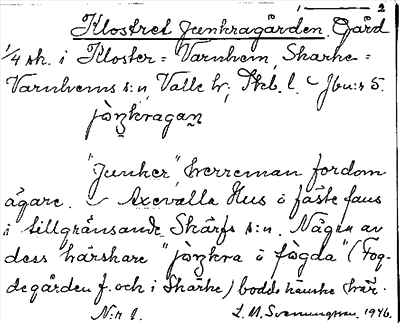 2
Klostret Junkragården. Gård
1/4 sk. i Kloster= Varnhem, Skarke=
Varnhems s:n, Valle hr, Skb. l. Jbn:s 5.
jòŋkragaɳ
"Junker", Herreman fordom
ägare. Axevalla Hus ö fäste fans
i tillgränsande Skärfs s:n. Någre av
dess härskare "jòŋkra å fògda" (Fog-
degården f. och i Skarke) bodde kanske här.
N:r 1. L. M. Svenungsson. 1946.